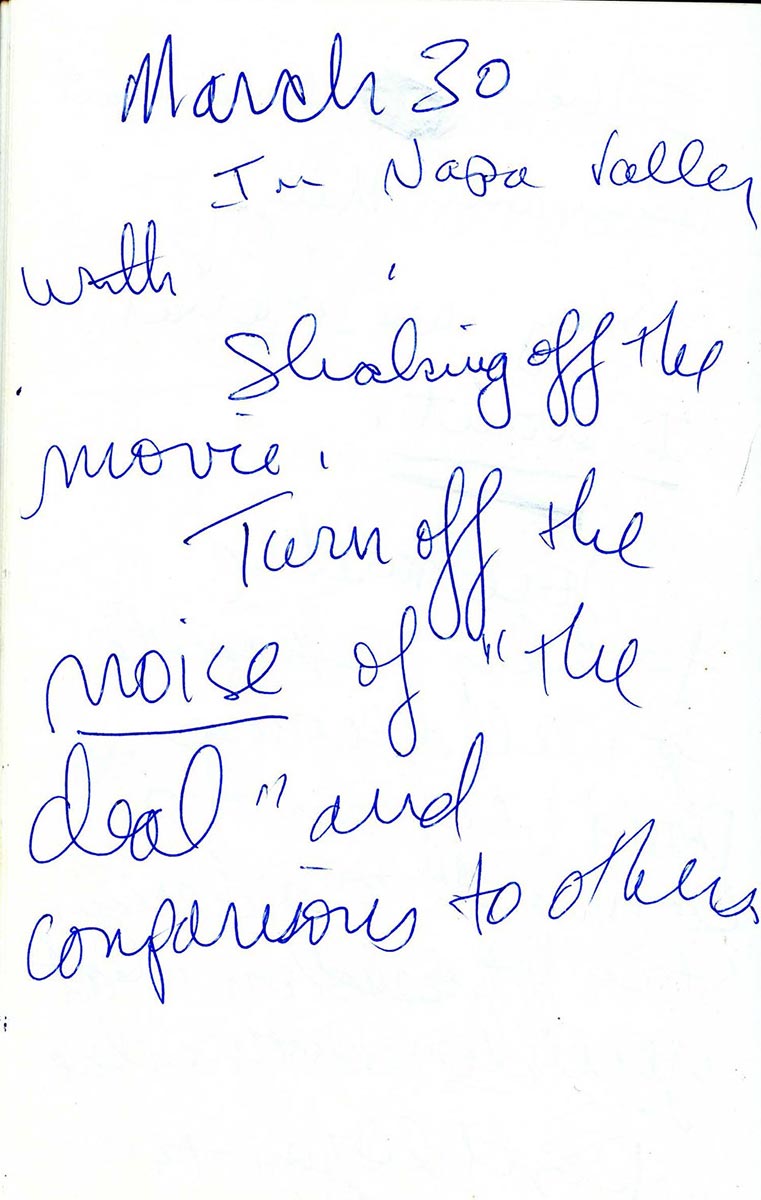 March 30
In Napa Valley
with
Shaking off the
movie.
Turn off the
noise of "the
deal" and
comparisons to others